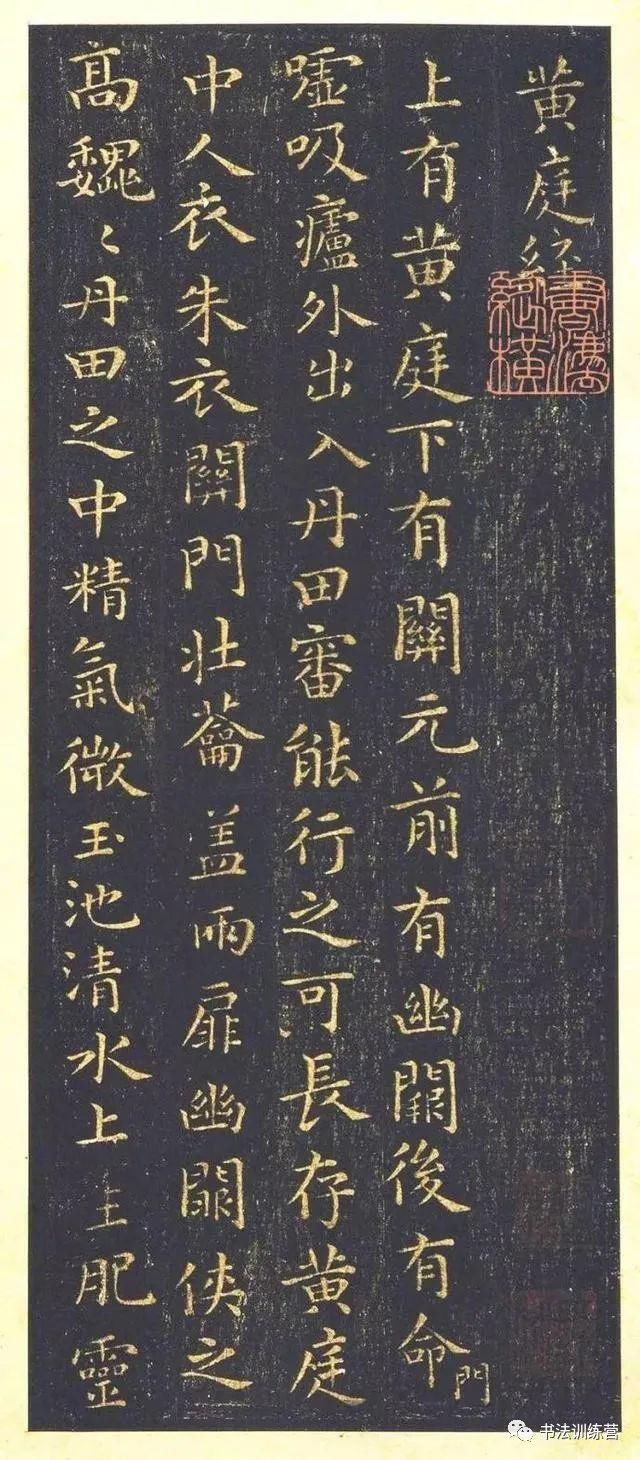 黄庭經
上有黄庭下有關元前有幽闕後有命門
嘘吸廬外出入丹田審能行之可長存黄庭
中人衣朱衣關門壯蘥盖兩扉幽闕俠之
高巍〻丹田之中精氣微玉池清水上生肥靈
书法训练营